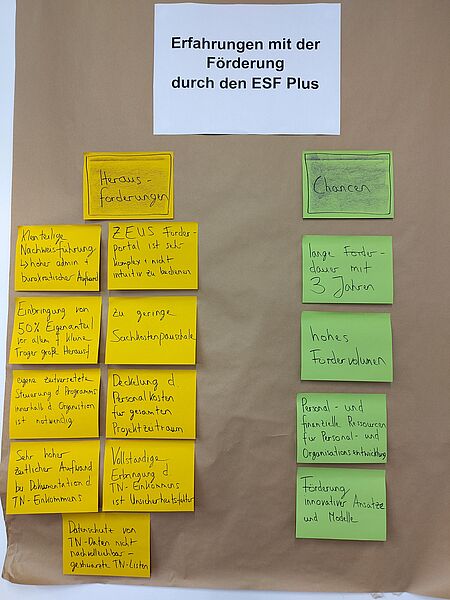 Erfahrungen mit der
Förderung
durch den ESF Plus
Heraus-
forderungen
Kleinteilige
Nachweisführung
↳ hoher admin +
bürokratischer Aufwand
Einbringung von
50% Eigenanteil
vor allem f kleine
Träger große Herausf.
eigene zeitversetzte
Steuerung d Programms
innerhalb d Organisation
ist notwendig
Sehr hoher
zeitlicher Aufwand
bei Dokumentation d
TN-Einkommens
ZEUS Förder-
portal ist sehr
komplex + nicht
intuitiv zu bedienen
zu geringe
Sachkostenpauschale
Deckelung d
Personalkosten
für gesamten
Projektzeitraum
Vollständige
Erbringung d
TN-Einkommens
ist Unsicherheitsfaktor
Datenschutz von
TN-Daten nicht
nachvollziehbar –
geschwärzte TN-Listen
Chancen
lange Förder-
dauer mit
3 Jahren
hohes
Fördervolumen
Personal- und
finanzielle Ressourcen
für Personal- und
Organisationsentwicklung
Förderung
innovativer Ansätze
und Modelle